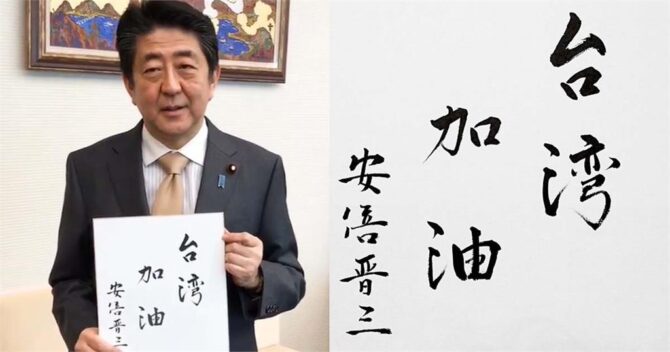 台湾
加油
安倍晋三
台湾
加油
安倍晋三